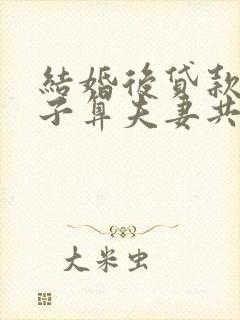 結婚後貸款
子算夫妻共
大米虫